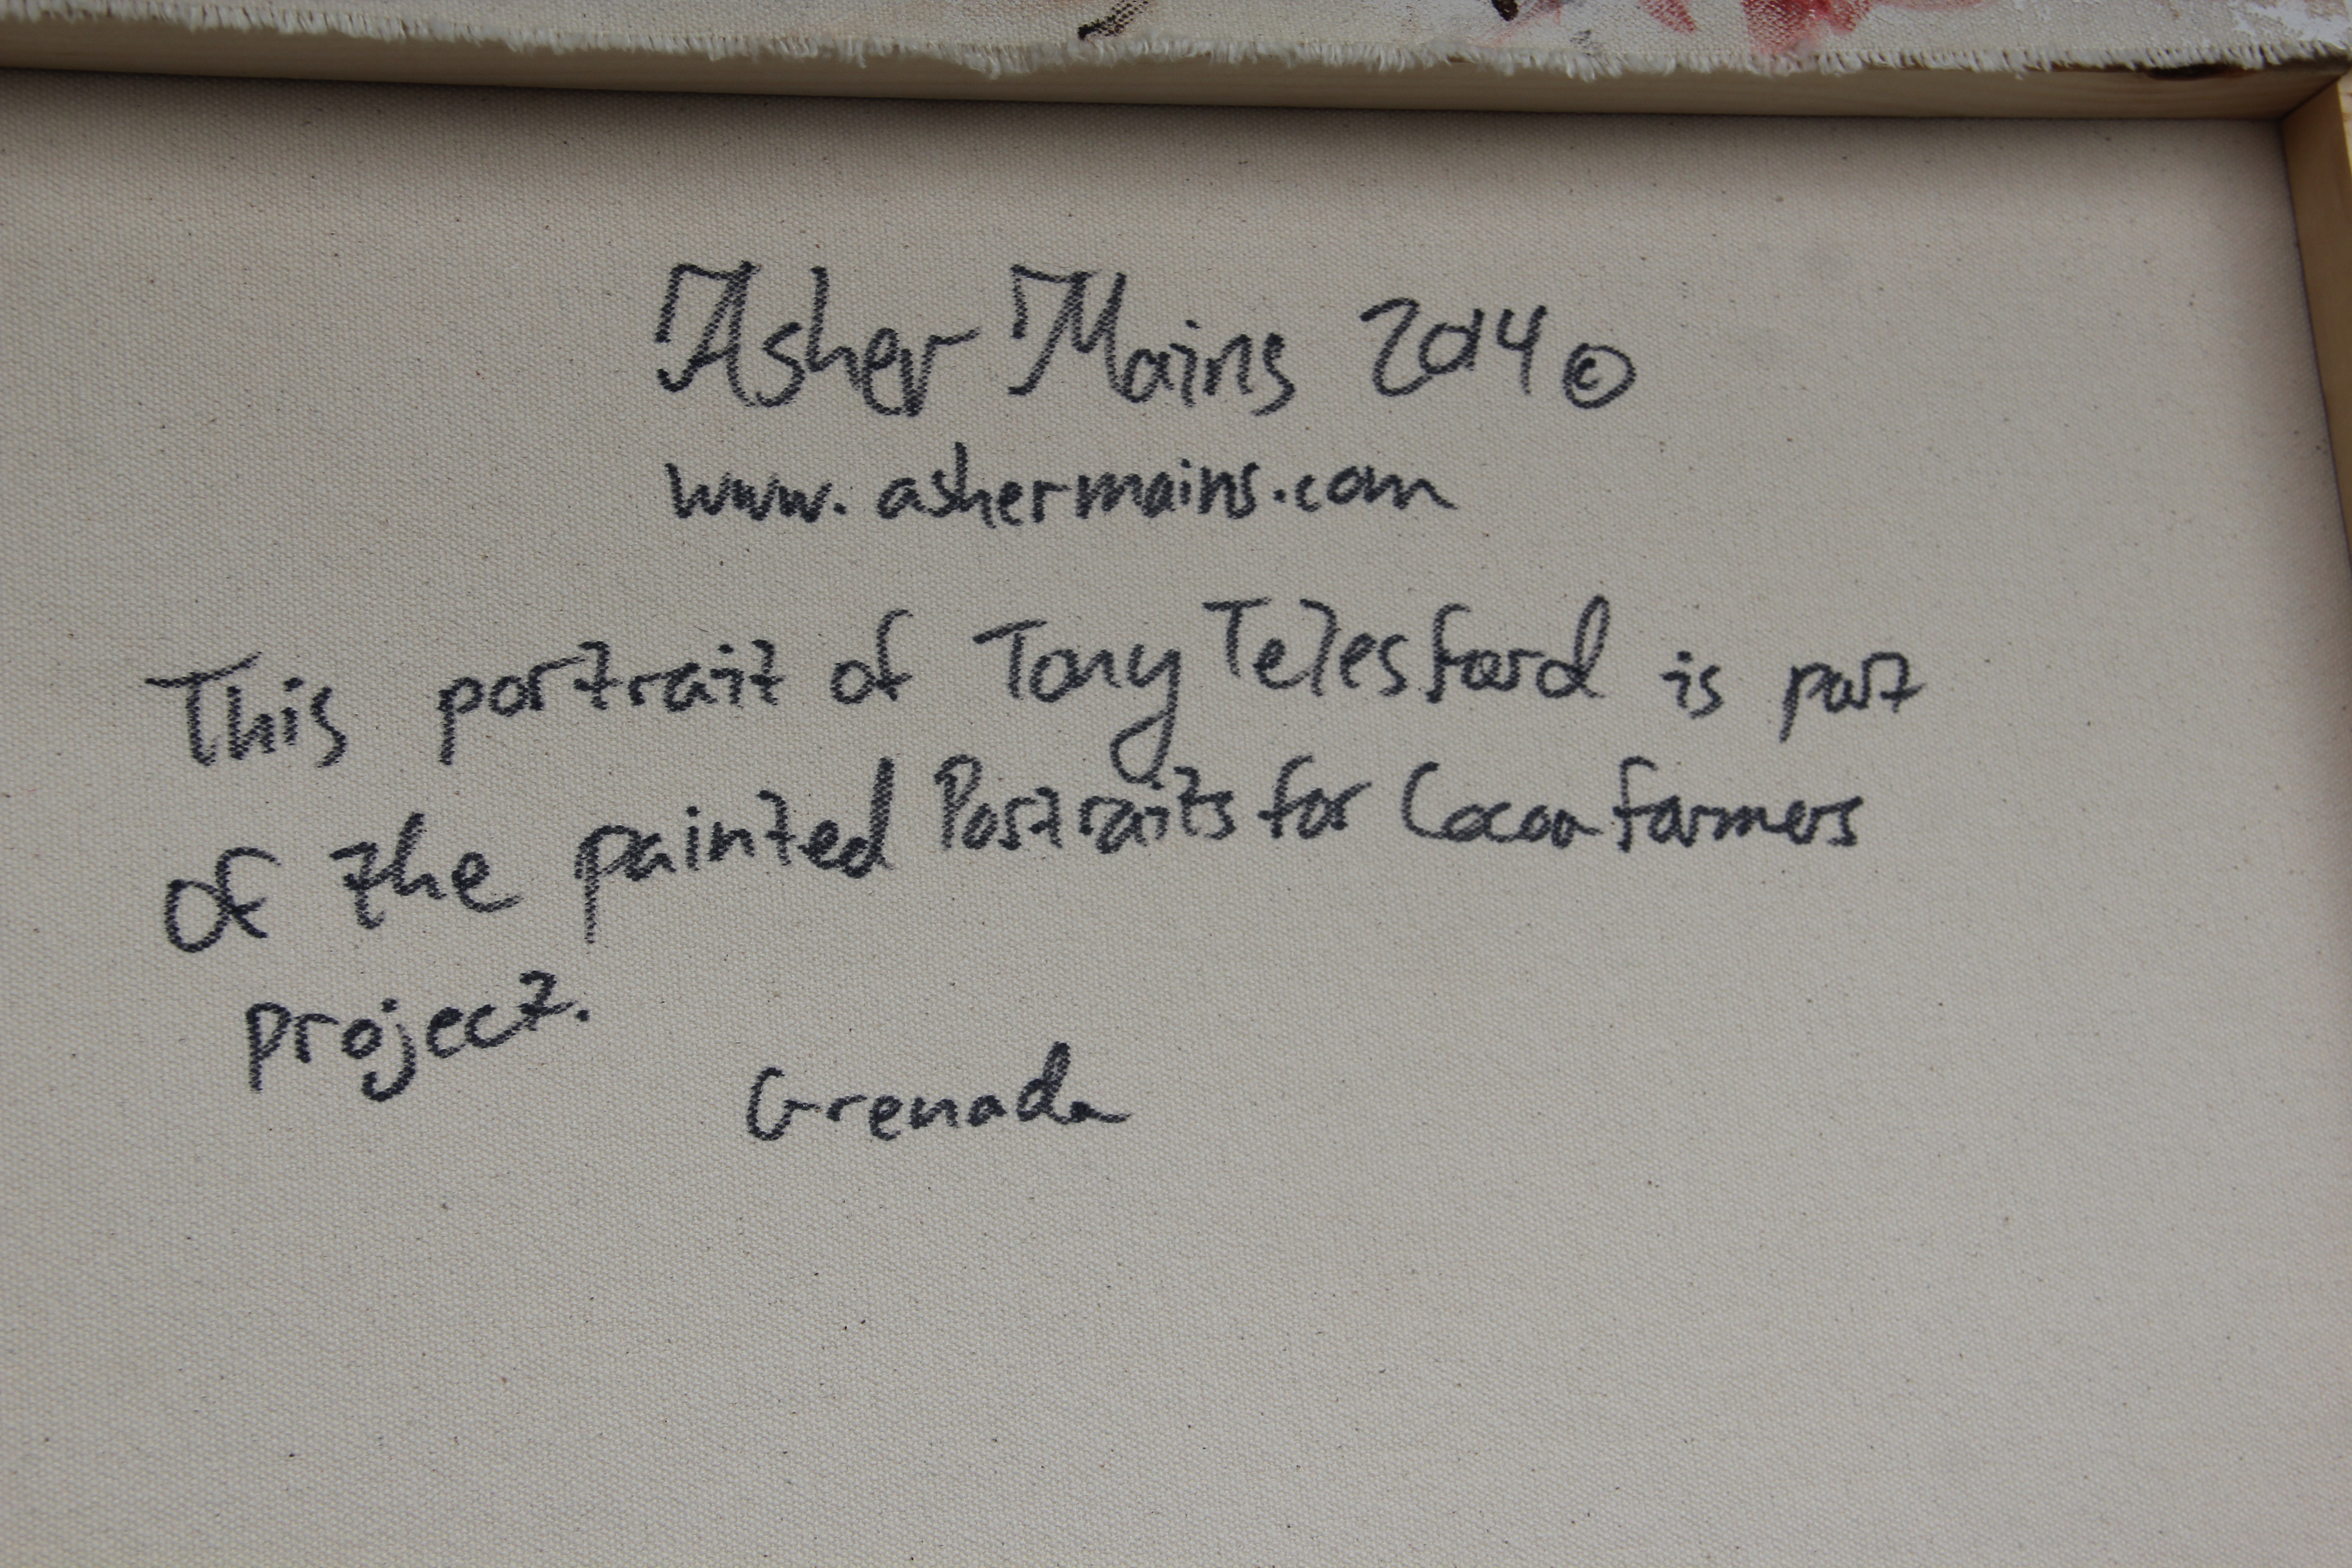 Asher Mains 2014 ©
www.ashermains.com
This portrait of Tony Telesford is part
of the painted Portraits for Cocoa farmers
project.
Grenada